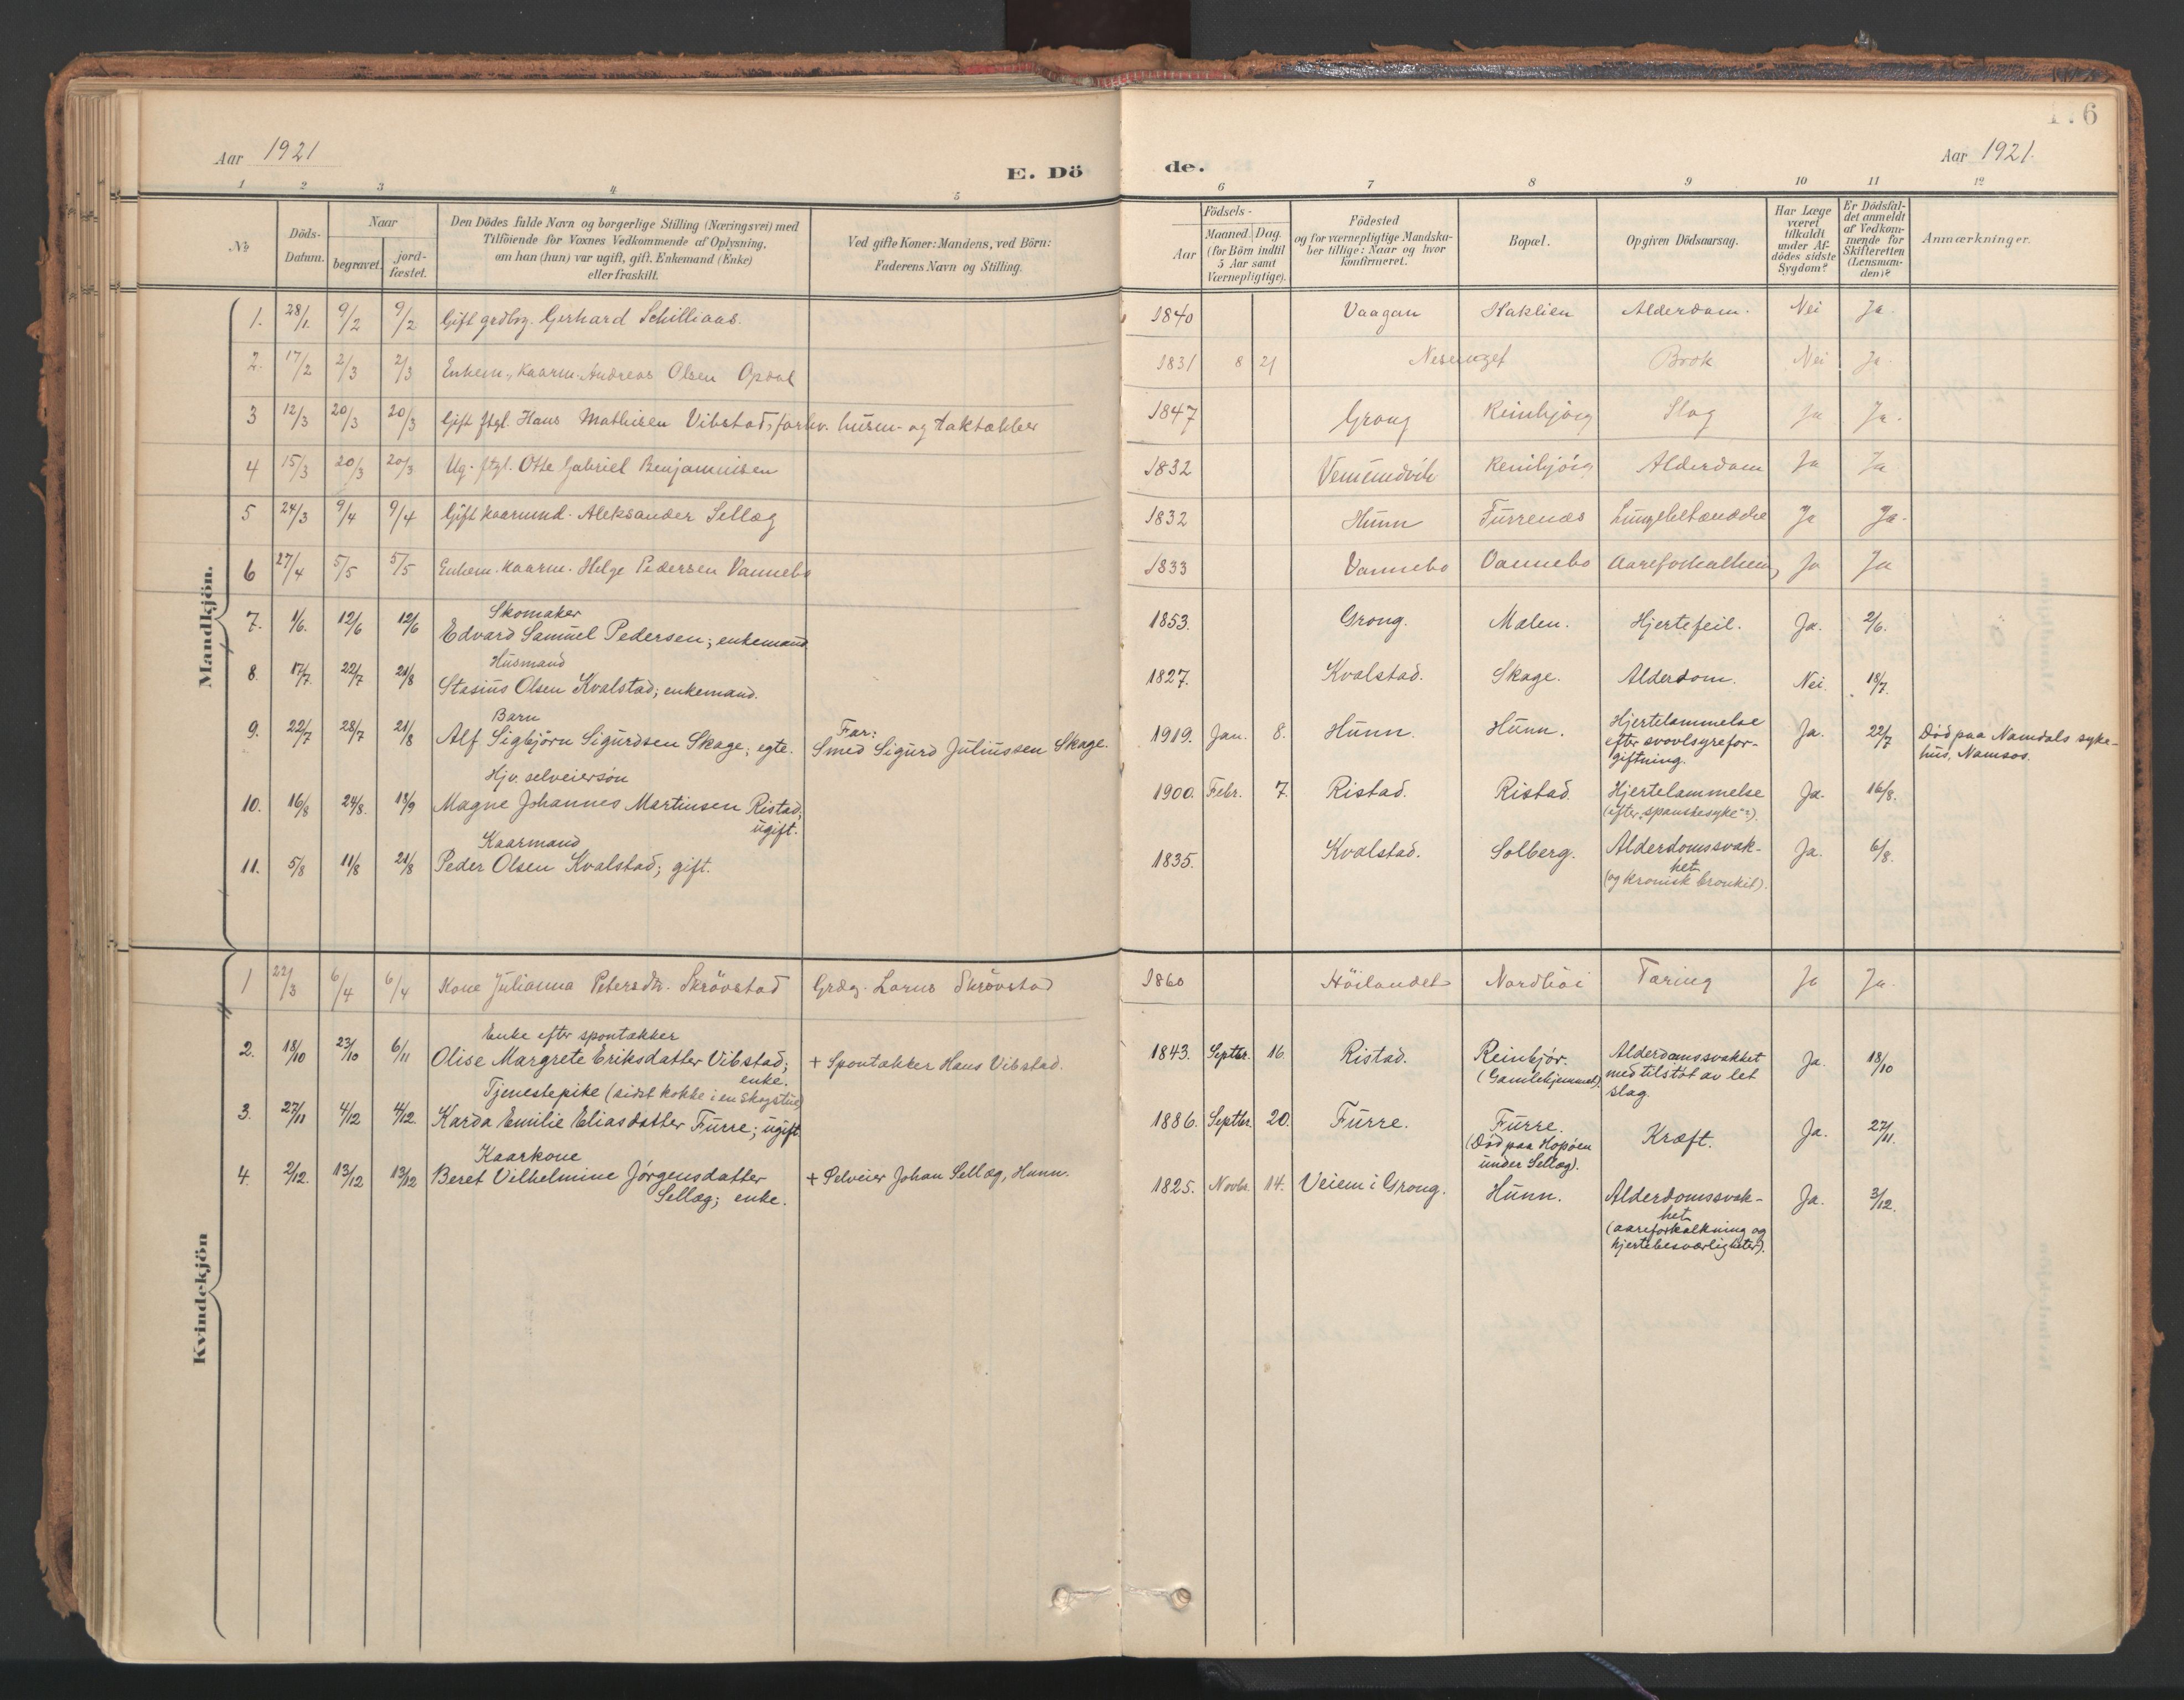 Aar 1921
E. Döde.
Aar 1921.
1 2 3 4 5 6 7 8 9 10 11 12
No
Döds-Datum.
Naar
begravet.
jordfæstet.
Den Dödes fulde Navn og borgerlige Stilling (Næringsvei) med
Tilföiende for Voxnes Vedkommende af Oplysning,
om han (hun) var ugift, gift, Enkemand (Enke)
eller fraskilt.
Ved gifte Koner: Mandens, ved Börn:
Faderens Navn og Stilling.
Födsels-
Aar
Maaned. Dag.
(for Börn indtil
5 Aar samt
Værnepligtige).
Födested
og for værnepligtige Mandska-
ber tillige: Naar og hvor
konfirmeret.
Bopæl.
Opgiven Dödsaarsag.
Har Læge
været
tilkaldt
under Af-
dödes sidste
Sygdom?
Er Dödsfal-
det anmeldt
af Vedkom-
mende for
Skifteretten
(Lensman-
den)?
Anmærkninger.
Mandkjön.
1. 28/1. 9/2 9/2 Gift grdbrg. Gerhard Schilliaas. 1840 Vaagan Haklien Alderdom. Nei Ja.
2. 17/2 2/3 2/3 Enkem., Kaarm. Andreas Olsen Opdal 1831 8 21 Brok Nei Ja.
3 12/3 20/3 20/3 Gift ftgl. Hans Mathisen Vibstad, forhv. husm- og taktækker 1847 Grong Reinbjörg Slag Ja Ja.
4 15/3 20/3 20/3 Ug. ftgl. Otte Gabriel Benjaminsen 1832 Vemundvik Reinbjörg Alderdom Ja Ja
5 24/3 9/4 9/4 Gift kaarmnd. Aleksander Sellæg 1832 Hunn Furrenæs Lungebetændelse Ja Ja.
6 27/4 5/5 5/5 Enkem. kaarm. Helge Pedersen Vannebo 1833 Vannebo Vannebo Ja Ja
Skomaker
7. 1/6. 12/6 12/6 Edvard Samuel Pedersen; enkemand. 1853. Grong. Malen. Hjertefeil. Ja. 2/6.
Husmand
8. 17/7. 22/7 21/8 Stasius Olsen Kvalstad; enkemand. 1827. Kvalstad. Skage. Alderdom. Nei. 18/7.
Barn
9. 22/7 28/7 21/8 Alf Sigbjörn Sigurdsen Skage; egte. Far: Smed Sigurd Juliussen Skage. 1919. Jan. 8. Hunn. Hunn. Hjertelammelse
efter svovlsyrefor-
giftning. Ja. 22/7 Död paa Namdals syke-
hus, Namsos.
Hjv. selveiersön
10. 16/8 24/8. 18/9 Magne Johannes Martinsen Ristad;
ugift. 1900. Febr. 7. Ristad. Ristad. Hjertelammelse
(efter „spanskesyke“?). Ja. 16/8.
Kaarmand
11. 5/8 11/8 21/8 Peder Olsen Kvalstad; gift. 1835. Kvalstad. Solberg. Alderdomssvak-
het
(og kronisk bronkit). Ja. 6/8.
Kvindekjön
1 22/3 6/4 6/4 Kone Julianna Petersdtr. Skrövstad Grdg. Lorns Skrövstad 1860 Höilandet Nordhöi Tæring Ja Ja.
Enke efter spontækker
2. 18/10 23/10 6/11 Olise Margrete Eriksdatter Vibstad;
enke. + Spontækker Hans Vibstad. 1843. Septbr. 16. Ristad. Reinbjör.
(Gamlehjemmet). Alderdomssvakhet
med tilstöt av let
slag. Ja. 18/10
Tjenestepike (sidst kokke i en skogstue)
3. 27/11 4/12 4/12. Karda Emilie Eliasdatter Furre; ugift. 1886. Septbr. 20. Furre. Furre.
(Död paa Hopöen
under Sellæg). Kræft. Ja. 27/11.
Kaarkone
4. 2/12. 13/12 13/12 Beret Vilhelmine Jörgensdatter
Sellæg; enke. + Selveier Johan Sellæg, Hunn. 1825. Novbr. 14. Veiem i Grong. Hunn. Alderdomssvak-
het
(aareforkalkning og
hjertebesværligheter). Ja. 3/12.